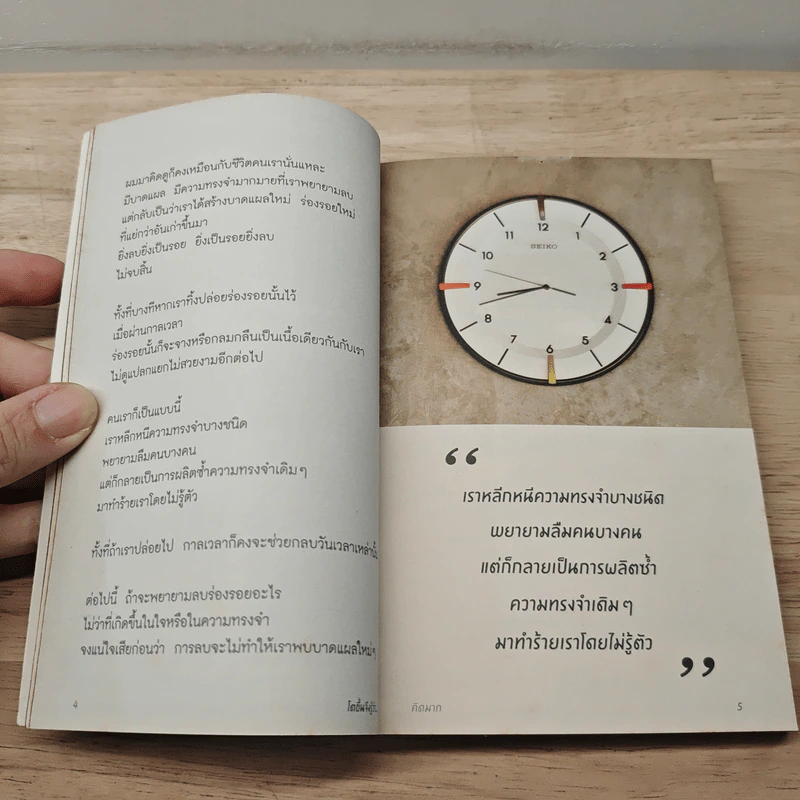 ผมมาคิดดูก็คงเหมือนกับชีวิตคนเรานั่นแหละ
มีบาดแผล มีความทรงจำมากมายที่เราพยายามลบ
แต่กลับเป็นว่าเราได้สร้างบาดแผลใหม่ ร่องรอยใหม่
ที่แย่กว่าอันเก่าขึ้นมา
ยิ่งลบยิ่งเป็นรอย ยิ่งเป็นรอยยิ่งลบ
ไม่จบสิ้น
ทั้งที่บางทีหากเราทิ้งปล่อยร่องรอยนั้นไว้
เมื่อผ่านกาลเวลา
ร่องรอยนั้นก็จะจางหรือกลมกลืนเป็นเนื้อเดียวกันกับเรา
ไม่ดูแปลกแยกไม่สวยงามอีกต่อไป
คนเราก็เป็นแบบนี้
เราหลีกหนีความทรงจำบางชนิด
พยายามลืมคนบางคน
แต่ก็กลายเป็นการผลิตซ้ำความทรงจำเดิมๆ
มาทำร้ายเราโดยไม่รู้ตัว
ทั้งที่ถ้าเราปล่อยไป กาลเวลาก็คงจะช่วยกลบวันเวลาเหล่านั้น
ต่อไปนี้ ถ้าจะพยายามลบร่องรอยอะไร
ไม่ว่าที่เกิดขึ้นในใจหรือในความทรงจำ
จงแน่ใจเสียก่อนว่า การลบจะไม่ทำให้เราพบบาดแผลใหม่ๆ
4
โตขึ้นจึงรู้ว่า
12
11
1
SEIKO
10
2
9
3
8
4
7
5
6
“
เราหลีกหนีความทรงจำบางชนิด
พยายามลืมคนบางคน
แต่ก็กลายเป็นการผลิตซ้ำ
ความทรงจำเดิมๆ
มาทำร้ายเราโดยไม่รู้ตัว
”
คิดมาก
5